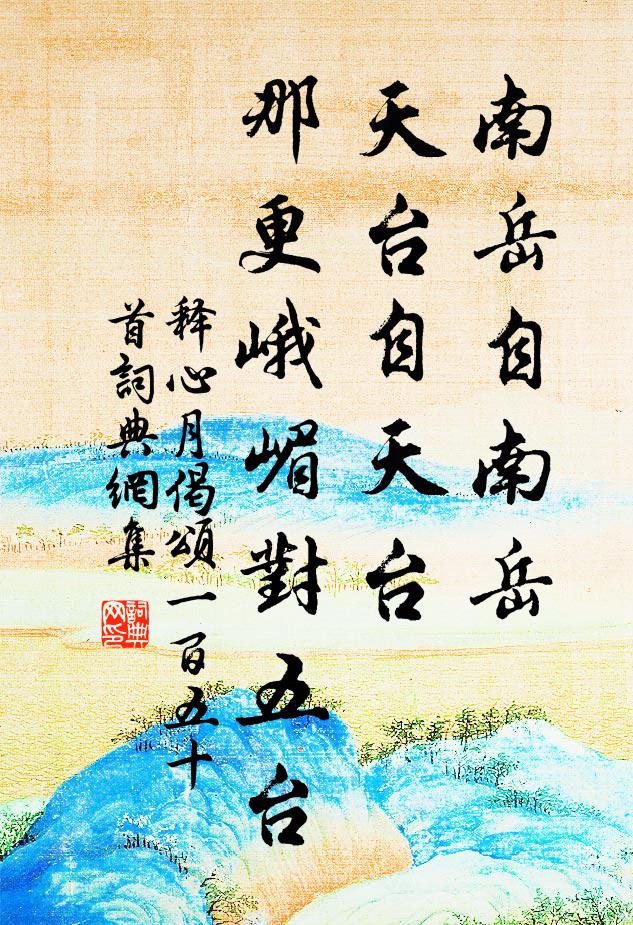 南岳自南岳
天台自天台
那更峨嵋對五台
释心月偈頌一百五十
首詞典網集
詞典
网印